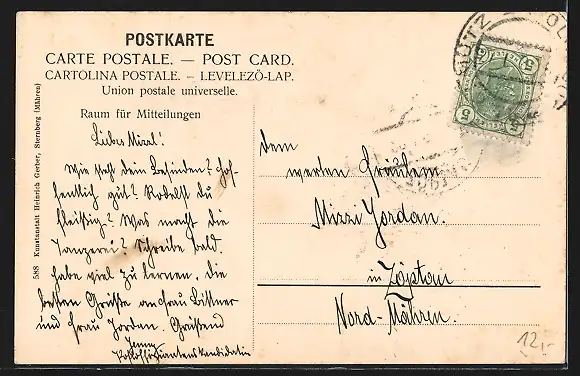 POSTKARTE
CARTE POSTALE. — POST CARD.
CARTOLINA POSTALE. — LEVELEZŐ-LAP.
Union postale universelle.
Raum für Mitteilungen
588 Kunstanstalt Heinrich Gerber, Sternberg (Mähren)
Liebes Mizzl!
Wie geht dein Befinden? Hof-
fentlich gut? Rodelst du
fleißig? Was macht die
Tanzerei? Schreibe bald
habe viel zu lernen. Die
besten Grüße an Frau Bittner
und Frau Jordan. Grüßend
Jenny
dem
werten Fräulein
Mizzi Jordan.
in Zöptau
Nord-Mähren.
5 5
5 5
12,-